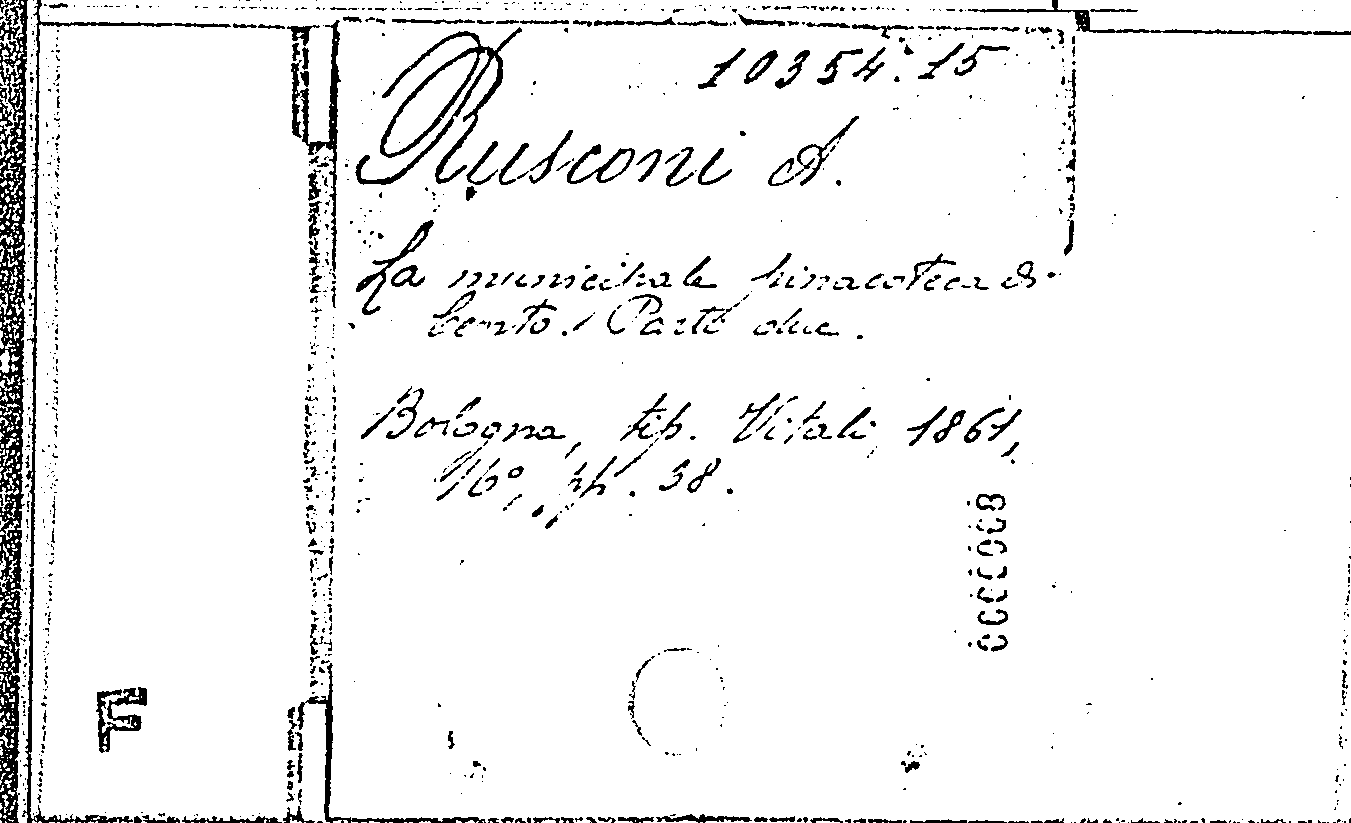 10354.15
Rusconi A.
La municipale pinacoteca di
Cento. Parte due.
Bologna, tip. Vitali, 1861,
16°, pp. 38.
0000008
F